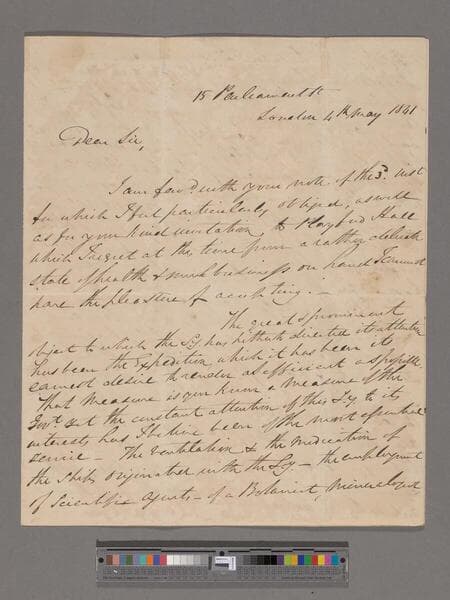 15 Parliament St
London 4th May 1841
Dear Sir,
I am favd. with your note of the 3d. inst
for which I feel particularly obliged, as well
as for your kind invitation to Playford Hall
which I regret at this time from a rather delicate
state of health & much business on hand I cannot
have the pleasure of accepting. —
The great & prominent
object to which the Sy. has hitherto directed its attention
has been the Expedition which it has been its
earnest desire to render as efficient as possible.
That Measure is you know a Measure of the
Govt. but the constant attention of this Sy. to its
interests has I believe been of the most essential
service — The Ventilation & the Medication of
the Ships originated with the Sy — the employment
of Scientific Agents — of a Botanist, Mineralogist